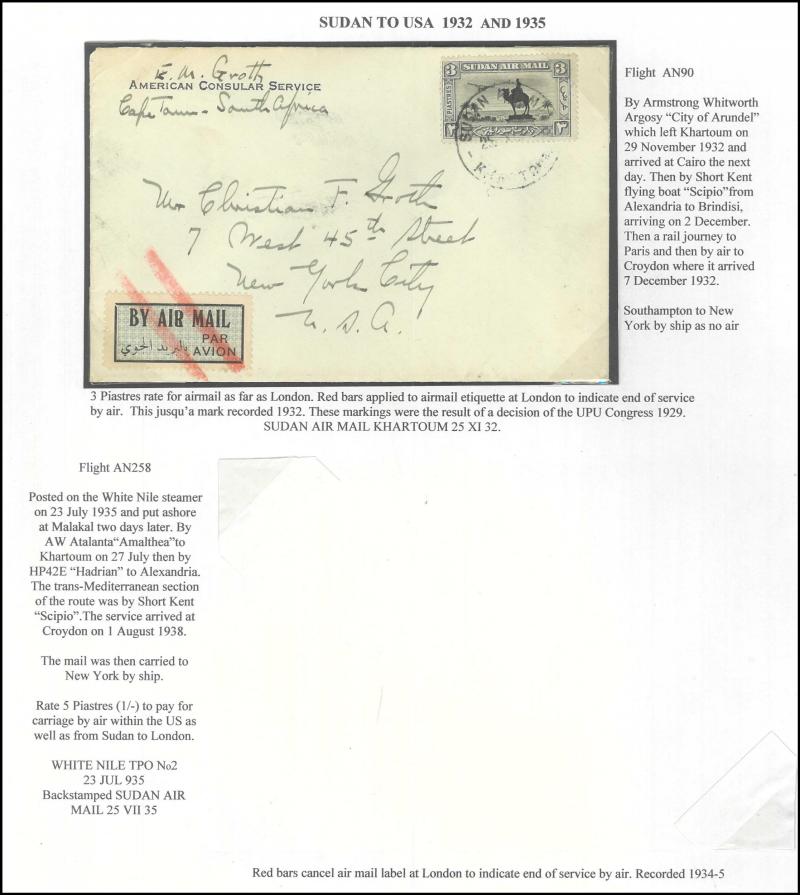 SUDAN TO USA 1932 AND 1935
E. M. Groth
AMERICAN CONSULAR SERVICE
Cape Town - South Africa
3 SUDAN AIR MAIL 3
PIASTRES
٣ ٣
KHARTOUM
Mr Christian F. Groth
7 West 45th Street
New York City
U.S.A.
BY AIR MAIL
PAR
AVION
بالبريد الجوي
Flight AN90
By Armstrong Whitworth
Argosy “City of Arundel”
which left Khartoum on
29 November 1932 and
arrived at Cairo the next
day. Then by Short Kent
flying boat “Scipio”from
Alexandria to Brindisi,
arriving on 2 December.
Then a rail journey to
Paris and then by air to
Croydon where it arrived
7 December 1932.
Southampton to New
York by ship as no air
3 Piastres rate for airmail as far as London. Red bars applied to airmail etiquette at London to indicate end of service
by air. This jusqu’a mark recorded 1932. These markings were the result of a decision of the UPU Congress 1929.
SUDAN AIR MAIL KHARTOUM 25 XI 32.
Flight AN258
Posted on the White Nile steamer
on 23 July 1935 and put ashore
at Malakal two days later. By
AW Atalanta“Amalthea”to
Khartoum on 27 July then by
HP42E “Hadrian” to Alexandria.
The trans-Mediterranean section
of the route was by Short Kent
“Scipio”.The service arrived at
Croydon on 1 August 1938.
The mail was then carried to
New York by ship.
Rate 5 Piastres (1/-) to pay for
carriage by air within the US as
well as from Sudan to London.
WHITE NILE TPO No2
23 JUL 935
Backstamped SUDAN AIR
MAIL 25 VII 35
Red bars cancel air mail label at London to indicate end of service by air. Recorded 1934-5